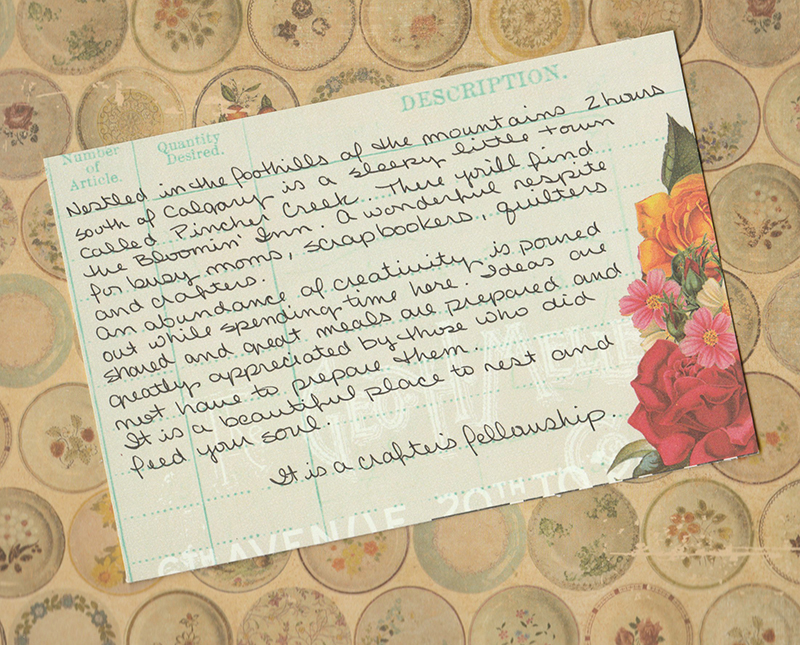 DESCRIPTION.
Number
of
Article.
Quantity
Desired.
Nestled in the foothills of the mountains 2 hours
south of Calgary is a sleepy little town
called Pincher Creek. There you'll find
the Bloomin' Inn. A wonderful respite
for busy moms, scrapbookers, quilters
and crafters.
An abundance of creativity is poured
out while spending time here. Ideas are
shared and great meals are prepared and
greatly appreciated by those who did
not have to prepare them.
It is a beautiful place to rest and
feed your soul.
It is a crafter's fellowship.
6TH AVENUE, 20TH TO